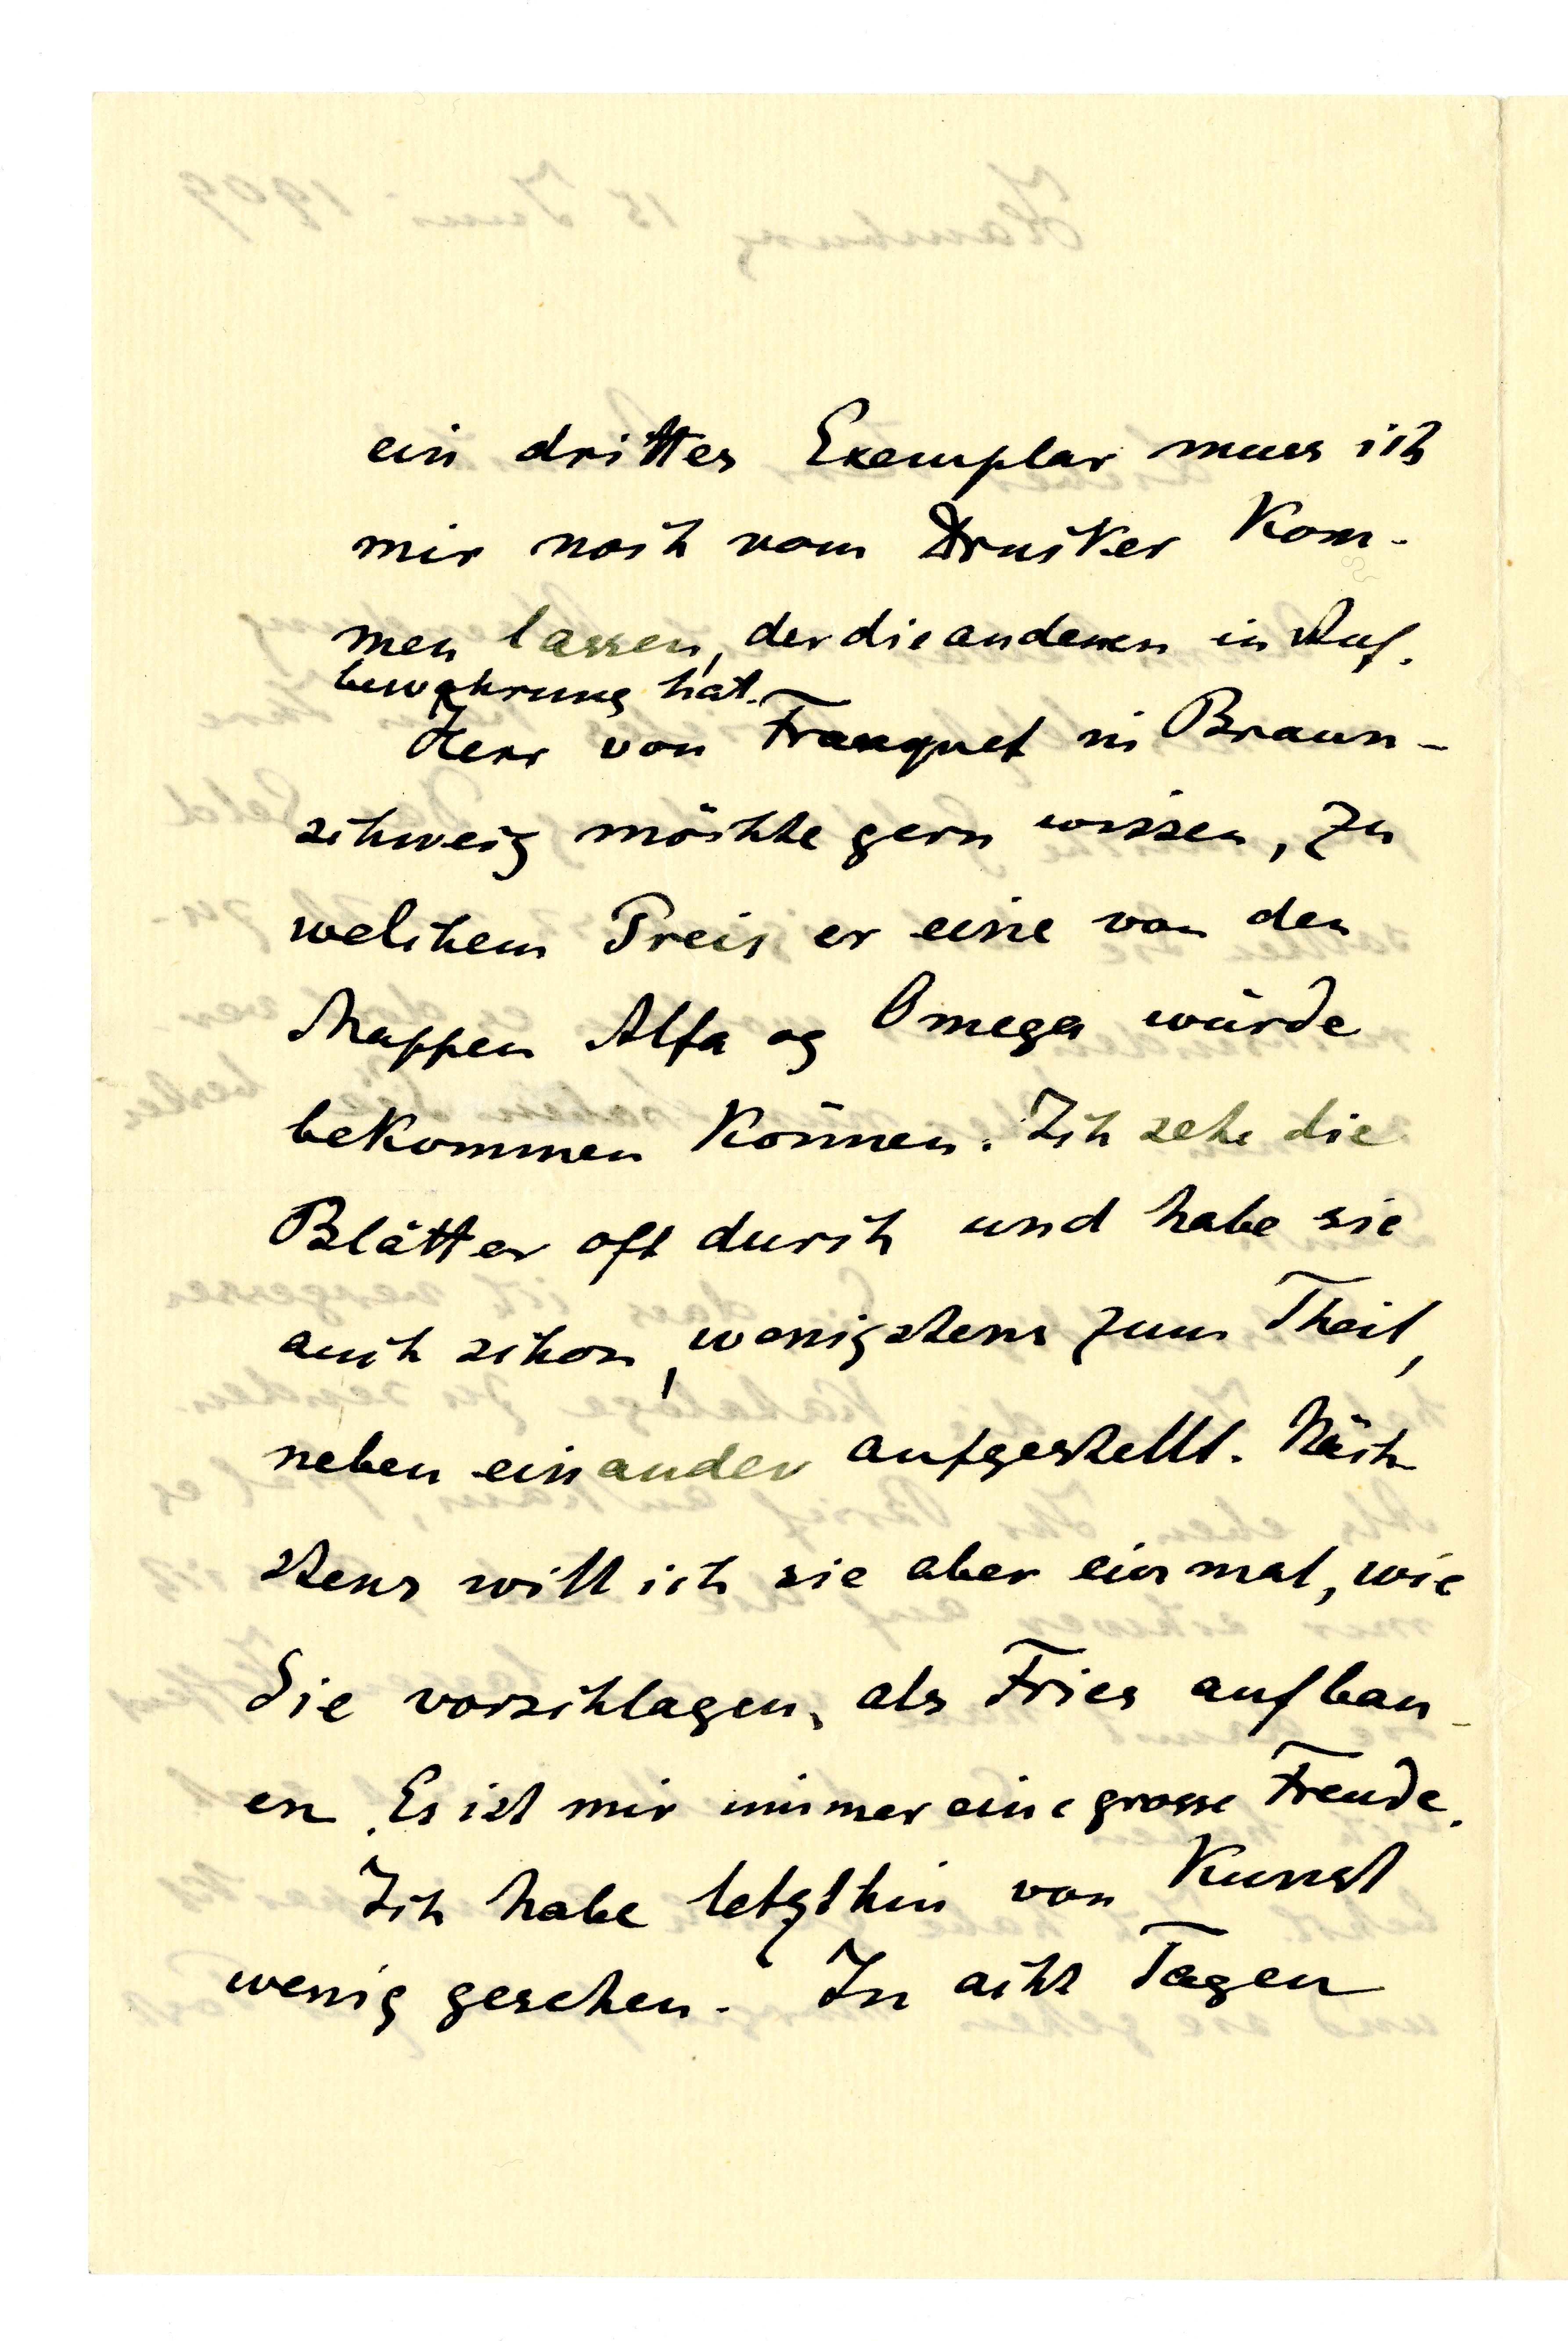 ein drittes Exemplar muss ich
mir noch vom Drucker Kom-
men lassen, der die anderen in Auf-
bewahrung hat.
Herr von Franquet in Braun-
schweig möchte gern wissen, zu
welchem Preis er eine von den
Mappen Alfa og Omega würde
bekommen können. Ich sehe die
Blätter oft durch und habe sie
auch schon, wenigstens zum Theil,
neben einander aufgestellt. Näch-
stens will ich sie aber einmal, wie
Sie vorschlagen, als Fries aufbau-
en. Es ist mir immer eine grosse Freude.
Ich habe letzthin von Kunst
wenig gesehen. In acht Tagen